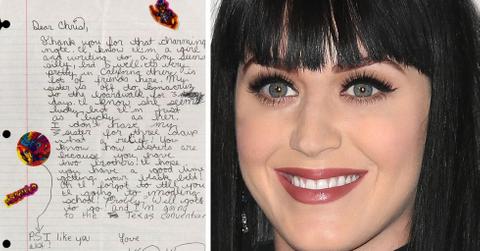 Dear Chris,
Thank you for that charming
note. I know I'm a girl
and writing to a boy seems
silly, but oh well. It's very
pretty in California there's
lots of friends here. My
sister is off to
to the boardwalk for 3
days. I know she seems
lucky but I'm just
as lucky as her.
I don't have my
sister for three days
what a relief! You
know how sisters are
because you have
two brothers! I hope
you have a good time
getting your black belt!
Oh I forgot to tell you
I'm going to modeling
school! Well gots
to go and I'm going
to the Texas convention
P.S. I like you
Love